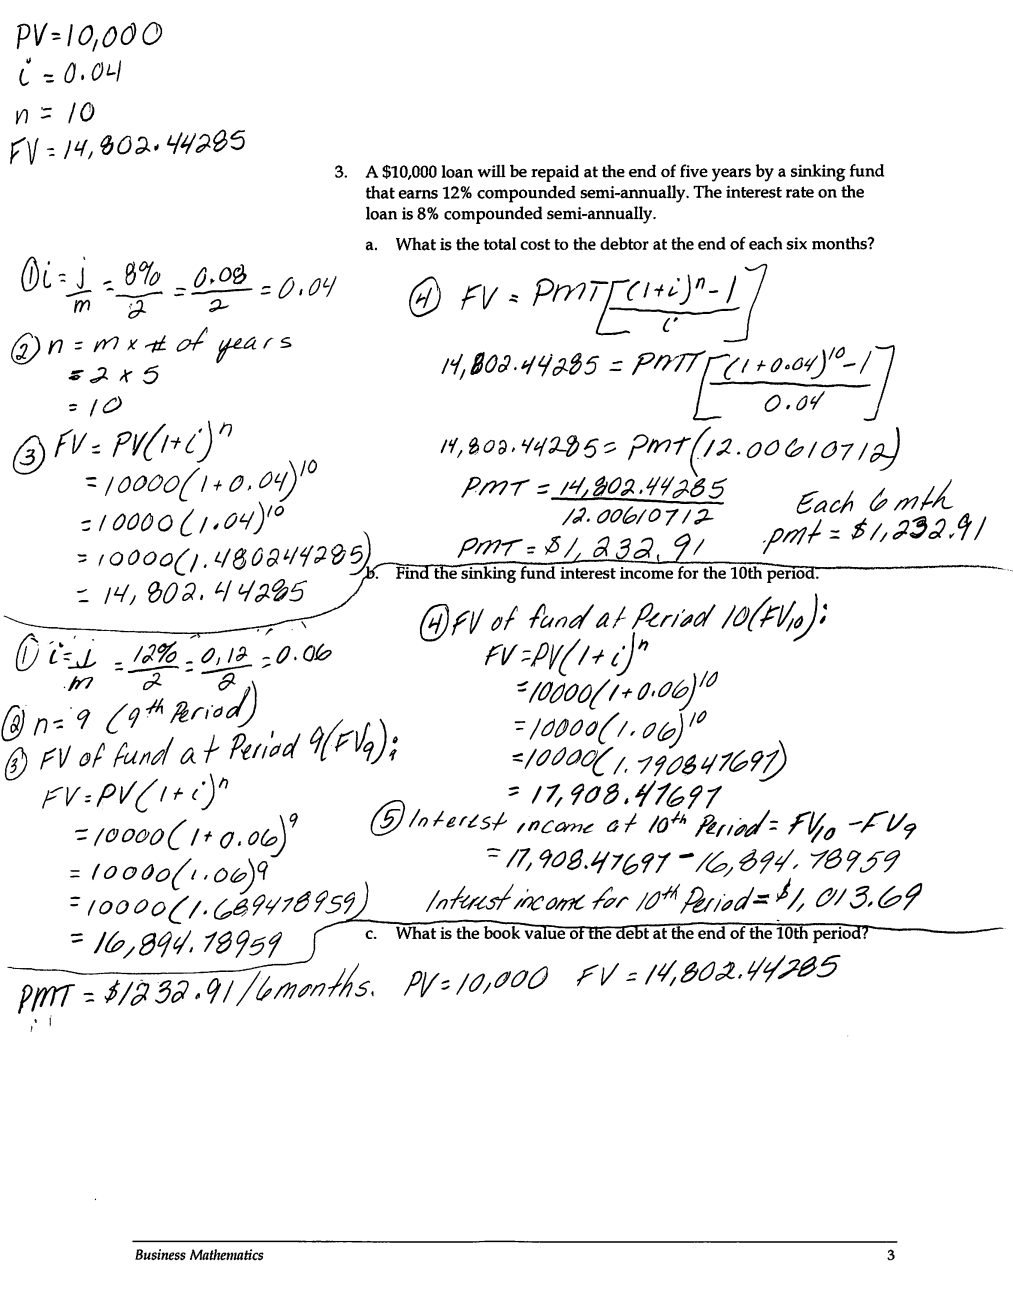 PV=10,000
i = 0.04
n = 10
FV=14,802.44285
3. A $10,000 loan will be repaid at the end of five years by a sinking fund
that earns 12% compounded semi-annually. The interest rate on the
loan is 8% compounded semi-annually.
a. What is the total cost to the debtor at the end of each six months?
① i = j/m = 8%/2 = 0.08/2 = 0.04
② n = m x # of years
= 2 x 5
= 10
③ FV = PV(1+i)^n
= 10000(1+0.04)^10
= 10000(1.04)^10
= 10000(1.480244285)
= 14,802.44285
④ FV = PMT[((1+i)^n - 1)/i]
14,802.44285 = PMT[((1+0.04)^10 - 1)/0.04]
14,802.44285 = PMT(12.00610712)
PMT = 14,802.44285/12.00610712
PMT = $1,232.91
Each 6 mth
pmt = $1,232.91
b. Find the sinking fund interest income for the 10th period.
① i = j/m = 12%/2 = 0.12/2 = 0.06
② n = 9 (9th Period)
③ FV of fund at Period 9(FV9):
FV = PV(1+i)^n
= 10000(1+0.06)^9
= 10000(1.06)^9
= 10000(1.689478959)
= 16,894.78959
④ FV of fund at Period 10(FV10):
FV = PV(1+i)^n
= 10000(1+0.06)^10
= 10000(1.06)^10
= 10000(1.790847697)
= 17,908.47697
⑤ Interest income at 10th Period = FV10 - FV9
= 17,908.47697 - 16,894.78959
Interest income for 10th Period = $1,013.69
c. What is the book value of the debt at the end of the 10th period?
PMT = $1232.91/6months. PV=10,000 FV = 14,802.44285
Business Mathematics 3